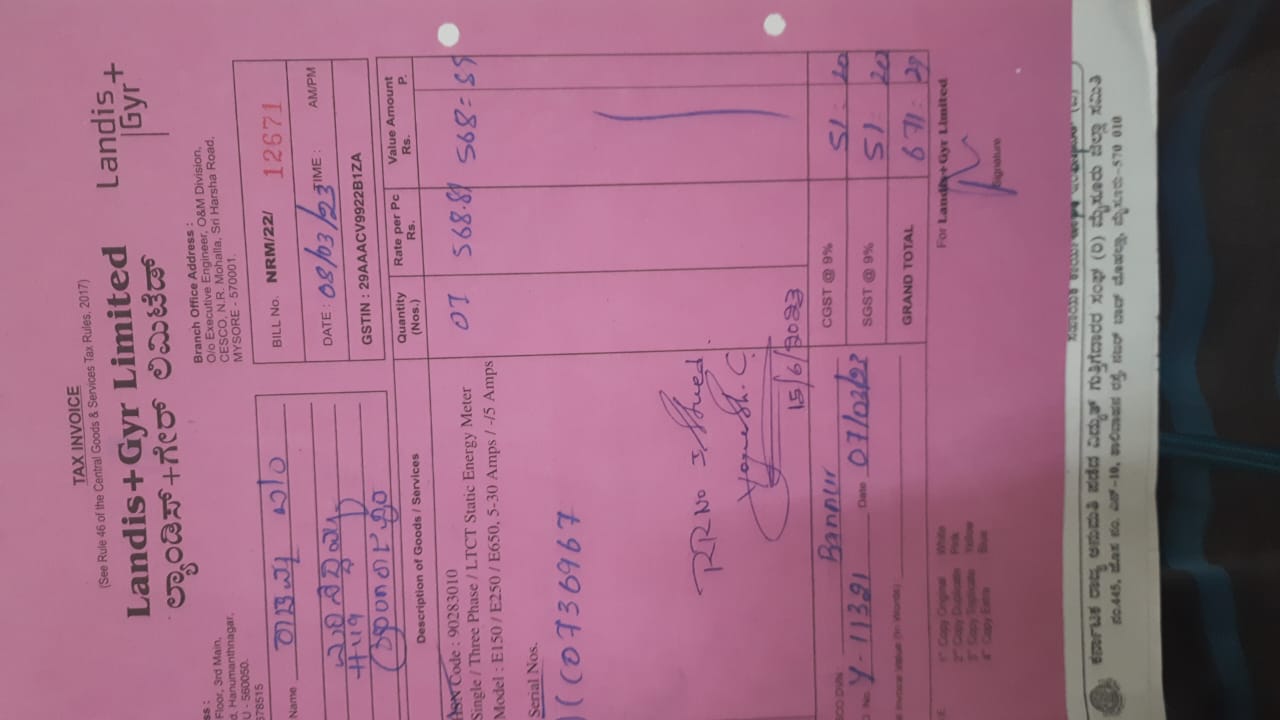 TAX INVOICE
(See Rule 46 of the Central Goods & Services Tax Rules. 2017)
Landis+Gyr Limited
Landis
Gyr+
ಲ್ಯಾಂಡಿಸ್+ಗೇರ್ ಲಿಮಿಟೆಡ್
Floor, 3rd Main,
Hanumanthnagar,
U - 560050.
678515
Branch Office Address :
O/o Executive Engineer, O&M Division,
CESCO, N.R. Mohalla, Sri Harsha Road,
MYSORE - 570001.
Name
#119
BILL No. NRM/22/ 12671
DATE : 08/03/23 TIME : AM/PM
GSTIN : 29AAACV9922B1ZA
Description of Goods / Services
Quantity (Nos.)
Rate per Pc Rs.
Value Amount Rs. P.
HSN Code : 90283010
Single / Three Phase / LTCT Static Energy Meter
Model : E150 / E250 / E650, 5-30 Amps / -/5 Amps
01 568.89 568=89
Serial Nos.
) ((0736967
RR No Issued.
Yogesh. C
15/6/2023
Bannur
CGST @ 9% 51: 20
Y-11321 Date 07/03/23
SGST @ 9% 51: 20
Invoice Value (In Words)
GRAND TOTAL 671: 29
For Landis+Gyr Limited
Signature
1st Copy Original White
2nd Copy Duplicate Pink
3rd Copy Triplicate Yellow
4th Copy Extra Blue
ಕರ್ನಾಟಕ ರಾಜ್ಯ ಅನುಮತಿ ಪಡೆದ ವಿದ್ಯುತ್ ಗುತ್ತಿಗೆದಾರರ ಸಂಘ (ರಿ) ಮೈಸೂರು ಜಿಲ್ಲಾ ಸಮಿತಿ
ನಂ.445, ಮೈಸೂರು-570 010